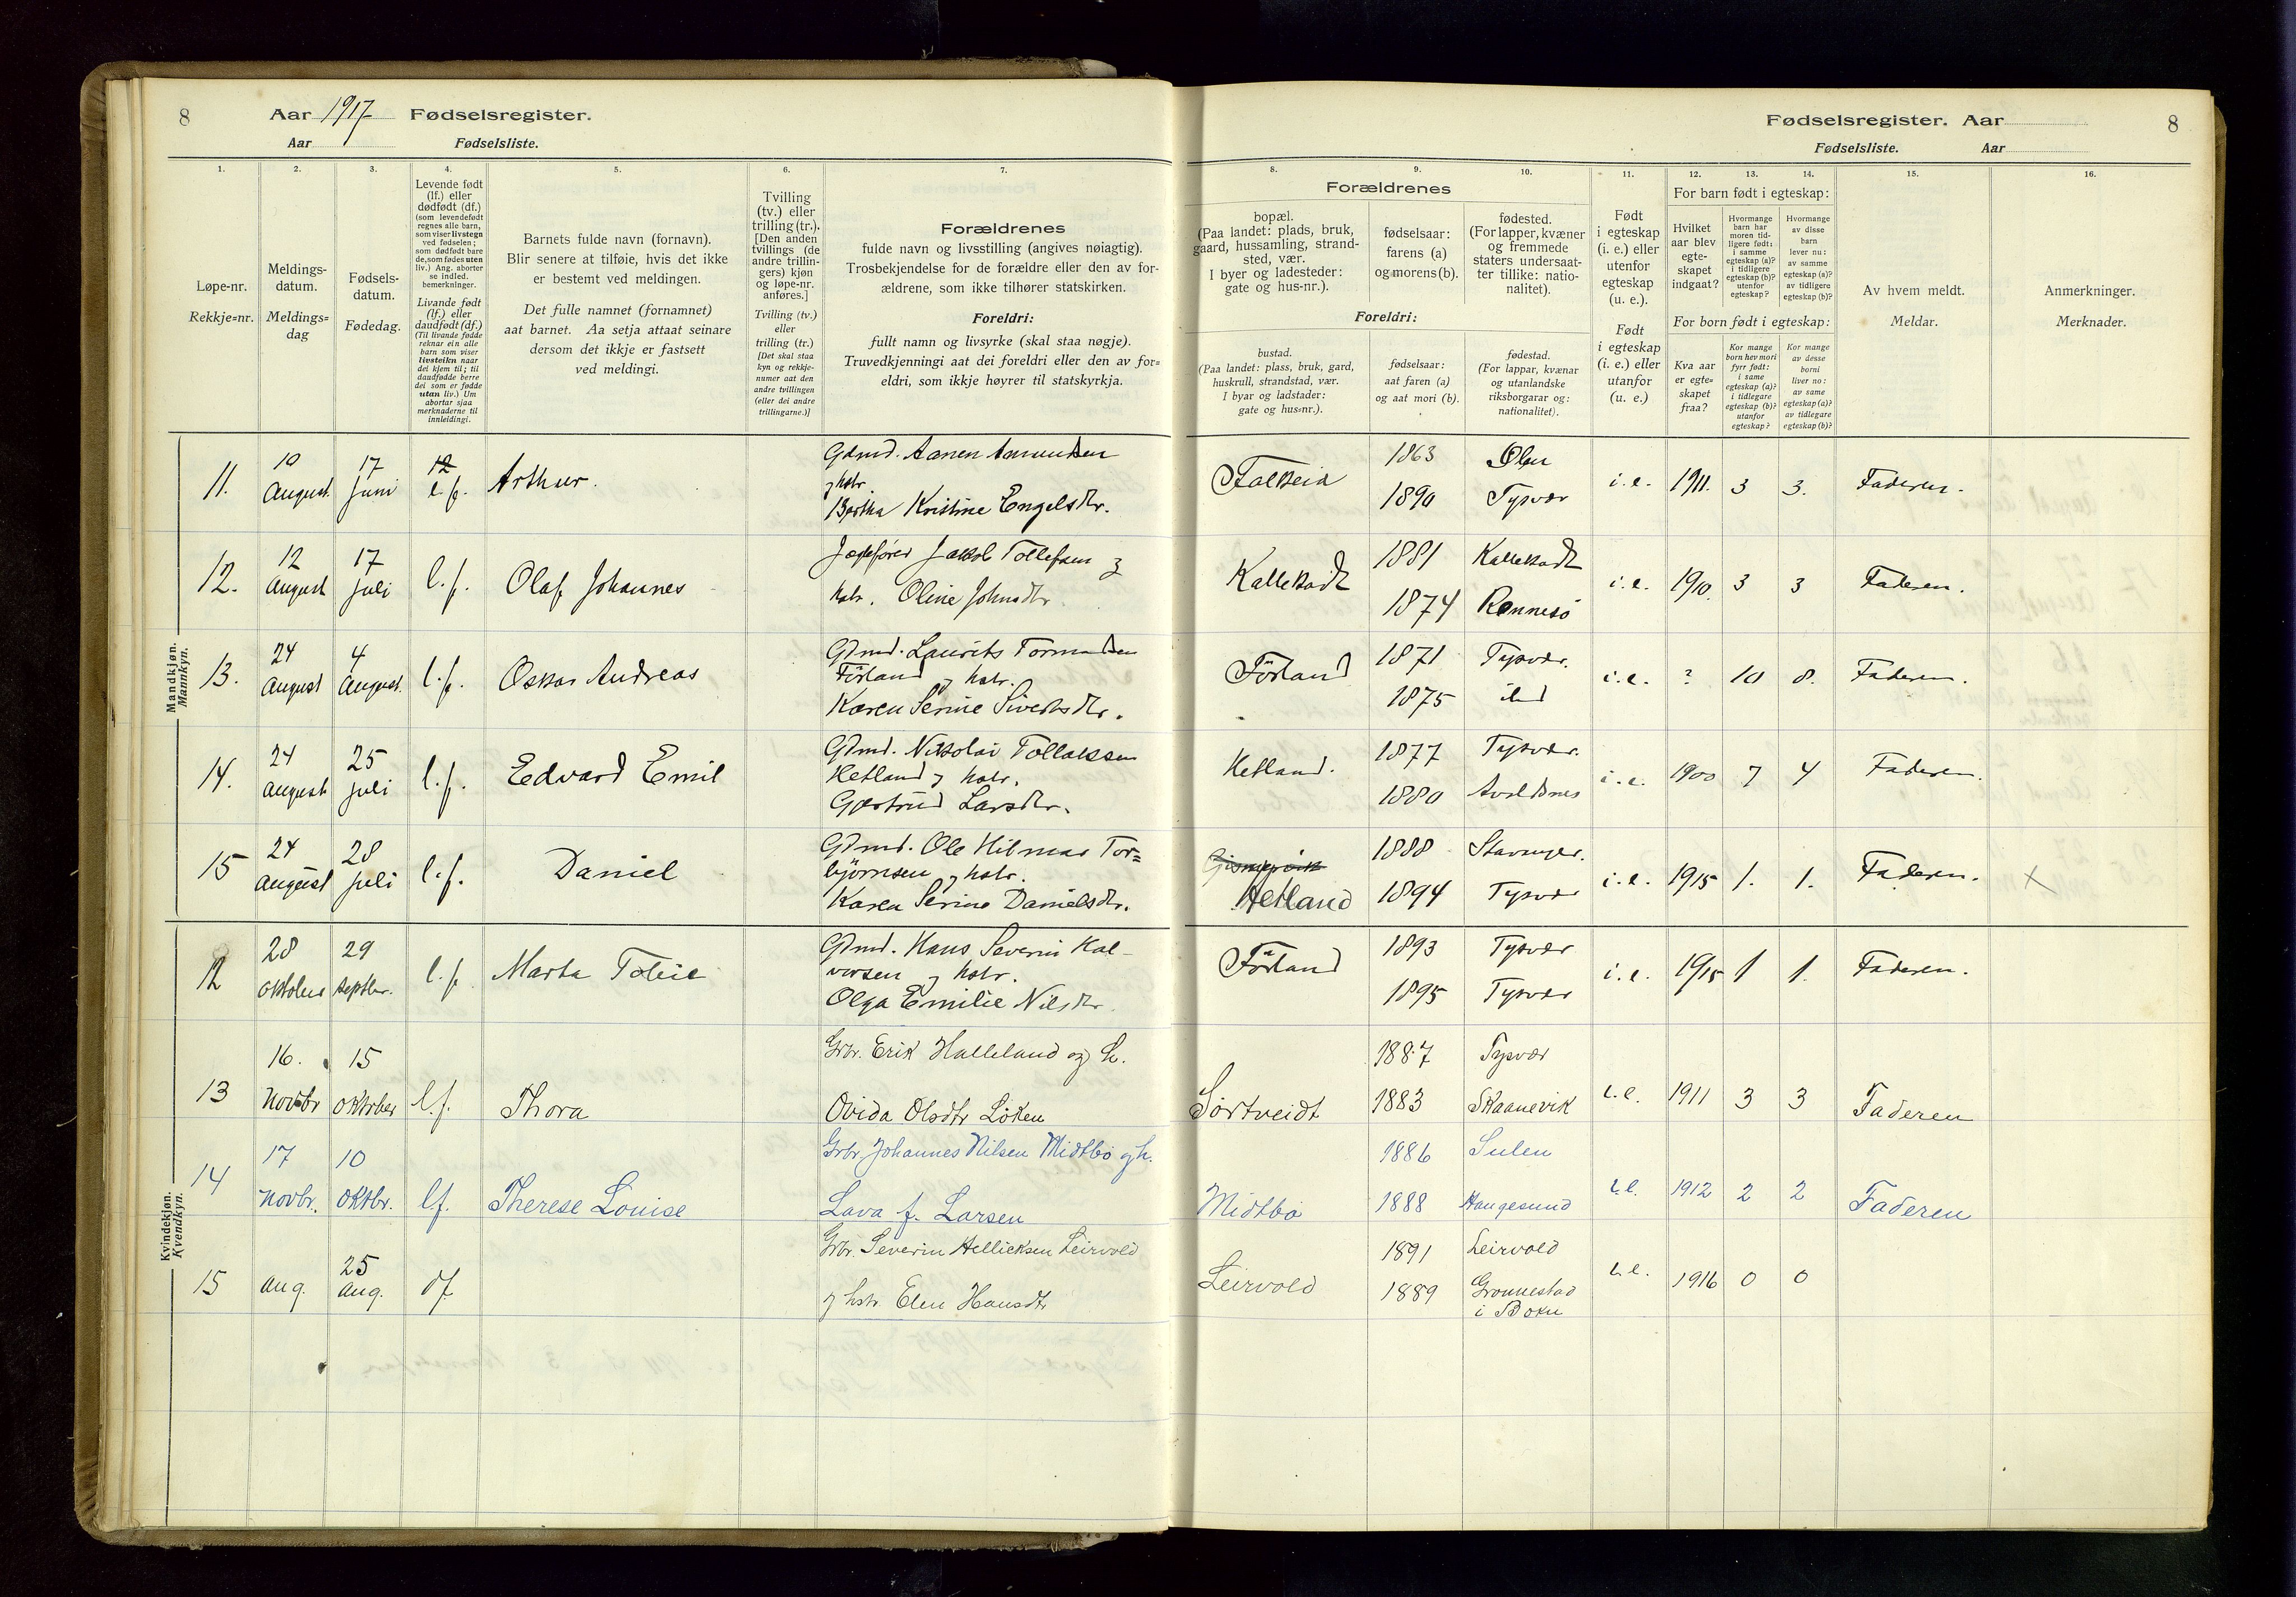 8
Aar 1917 Fødselsregister.
Aar Fødselsliste.
Fødselsregister. Aar
8
Fødselsliste. Aar
1. 2. 3. 4. 5. 6. 7. 8. 9. 10. 11. 12. 13. 14. 15. 16.
Løpe-nr.
Rekkje=nr.
Meldings-
datum.
Meldings=
dag
Fødsels-
datum.
Fødedag.
Levende født
(lf.) eller
dødfødt (df.)
(som levendefødt
regnes alle barn,
som viser livstegn
ved fødselen;
som dødfødt bare
de, som fødes uten
liv.) Ang. aborter
se indled.
bemerkninger.
Livande født
(lf.) eller
daudfødt (df.)
(Til livande fødde
reknar ein alle
barn som viser
livsteikn naar
dei kjem til; til
daudfødde berre
dei som er fødde
utan liv.) Um
abortar sjaa
merknaderne til
innleidingi.
Barnets fulde navn (fornavn).
Blir senere at tilføie, hvis det ikke
er bestemt ved meldingen.
Det fulle namnet (fornamnet)
aat barnet. Aa setja attaat seinare
dersom det ikkje er fastsett
ved meldingi.
Tvilling
(tv.) eller
trilling (tr.).
[Den anden
tvillings (de
andre trillin-
gers) kjøn
og løpe-nr.
anføres.]
Tvilling (tv.)
eller
trilling (tr.)
[Det skal staa
kyn og rekkje-
numer aat den
andre tvillingen
(eller dei andre
trillingarne.)]
Forældrenes
fulde navn og livsstilling (angives nøiagtig).
Trosbekjendelse for de forældre eller den av for-
ældrene, som ikke tilhører statskirken.
Foreldri:
fullt namn og livsyrke (skal staa nøgje).
Truvedkjenningi aat dei foreldri eller den av for=
eldri, som ikkje høyrer til statskyrkja.
Forældrenes
bopæl.
(Paa landet: plads, bruk,
gaard, hussamling, strand-
sted, vær.
I byer og ladesteder:
gate og hus-nr.).
fødselsaar:
farens (a)
og morens (b).
fødested.
(For lapper, kvæner
og fremmede
staters undersaat-
ter tillike: natio-
nalitet).
Foreldri:
bustad.
(Paa landet: plass, bruk, gard,
huskrull, strandstad, vær.
I byar og ladstader:
gate og hus=nr.).
fødselsaar:
aat faren (a)
og aat mori (b).
fødestad.
(For lappar, kvænar
og utanlandske
riksborgarar og:
nationalitet).
Født
i egteskap
(i. e.) eller
utenfor
egteskap
(u. e.).
Født
i egteskap
(i. e.) eller
utanfor
(u. e.)
For barn født i egteskap:
Hvilket
aar blev
egte-
skapet
indgaat?
Hvormange
barn har
moren tid-
ligere født:
i samme
egteskap (a)?
i tidligere
egteskap (b)?
utenfor
egteskap?
Hvormange
av disse
barn
lever nu:
av samme
egteskap (a)?
av tidligere
egteskap (b)?
For born født i egteskap:
Kva aar
er egte=
skapet
fraa?
Kor mange
born hev mori
fyrr født:
i same
egteskap (a)?
i tidlegare
egteskap (b)?
utanfor
egteskap?
Kor mange
av desse
borni
liver no:
av same
egteskap (a)?
av tidlegare
egteskap (b)?
Av hvem meldt.
Meldar.
Anmerkninger.
Merknader.
Mandkjøn.
Mannkyn.
11. 10 August. 17 juni 12 l. f. Arthur.
Gdmd. Aanen Amundsen
og hstr.
Bertha Kristine Engelsdtr.
Falkeid 1863 Ølen
1890 Tysvær i. e. 1911. 3 3. Faderen.
12. 12 August 17 juli l. f. Olaf Johannes
Jakob Tollefsen og
hstr. Oline Johnsdtr.
1881
1874 Rennesö i. e. 1910. 3 3 Faderen.
13. 24 August 4 August. l. f. Oskar Andreas
Gdmd. Laurits
Förland og hstr.
Karen Serine Sivertsdtr.
Förland 1871 Tysvær.
1875 ibd i. e. ? 10 8. Faderen.
14. 24 August 25 juli l. f. Edvard Emil
Gdmd. Nikolai Tollaksen
Hetland og hstr.
Gjertrud Larsdtr.
Hetland. 1877 Tysvær.
1880 Avaldsnes i. e. 1900 7 4 Faderen.
15 24 August 28 juli l. f. Daniel
Gdmd. Ole Hilmar Tor=
björnsen og hstr.
Karen Serine Danielsdtr.
Hetland 1888 Stavanger.
1894 Tysvær i. e. 1915 1. 1. Faderen. x
Kvindekjøn.
Kvendkyn.
12 28 oktober 29 septbr. l. f. Marta Tobie
Gdmd. Hans Severin Hal-
vorsen og hstr.
Olga Emilie Nilsdtr.
Förland 1893 Tysvær
1895 Tysvær i. e. 1915 1 1. Faderen.
13 16. Novbr 15 oktober l. f. Thora
Grbr. Erik Halleland og h.
Ovida Olsdtr Löken
Sörtveidt 1887 Tysvær
1883 Skaanevik i. e. 1911 3 3 Faderen
14 17 Novbr. 10 oktbr. l f. Therese Louise
Grbr Johannes Nilsen Midtbö og h.
Lava f. Larsen
Midtbö 1886 Sulen
1888 Haugesund i. e. 1912 2 2 Faderen
15 aug. 25 aug. df.
Grbr. Severin Hellicksen Leirvold
og hstr Elen Hansdtr
Leirvold 1891 Leirvold
1889 Grönnestad
i Bokn i. e. 1916 0 0